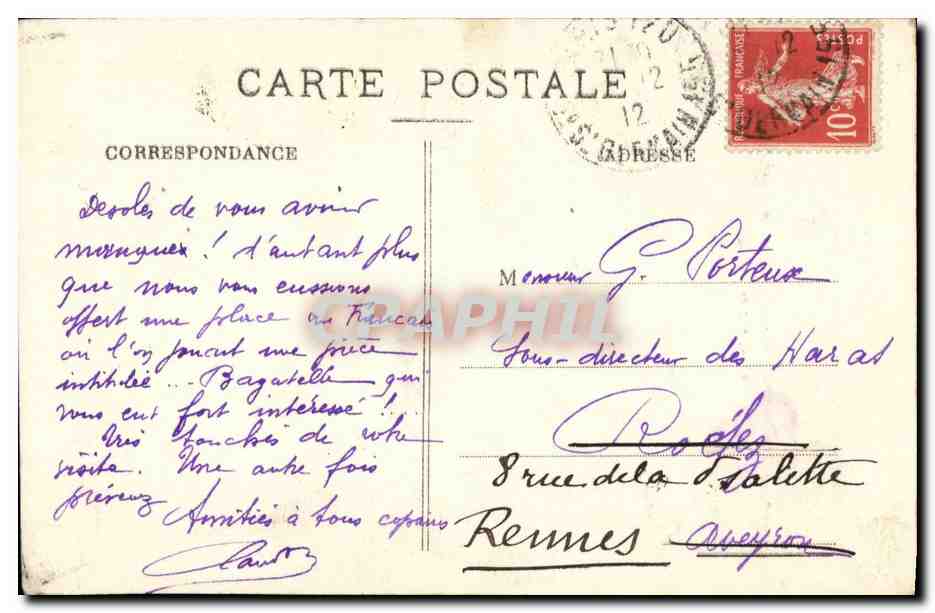 CARTE POSTALE
CORRESPONDANCE
ADRESSE
REPUBLIQUE FRANÇAISE
POSTES
10
12
12
St GERMAIN
GERMAIN
Desolés de vous avoir
manqués! d'autant plus
que nous vous eussions
offert une place au Francais
où l'on jouait une pièce
intitulée... Bagatelle qui
vous eut fort intéressé!...
Très touchés de votre
visite. Une autre fois
prévenez
Amitiés à tous
Monsieur G. Porteux
Sous-directeur des Haras
Rodez
8 rue de la Psalette
Rennes Aveyron
CPAPHIL